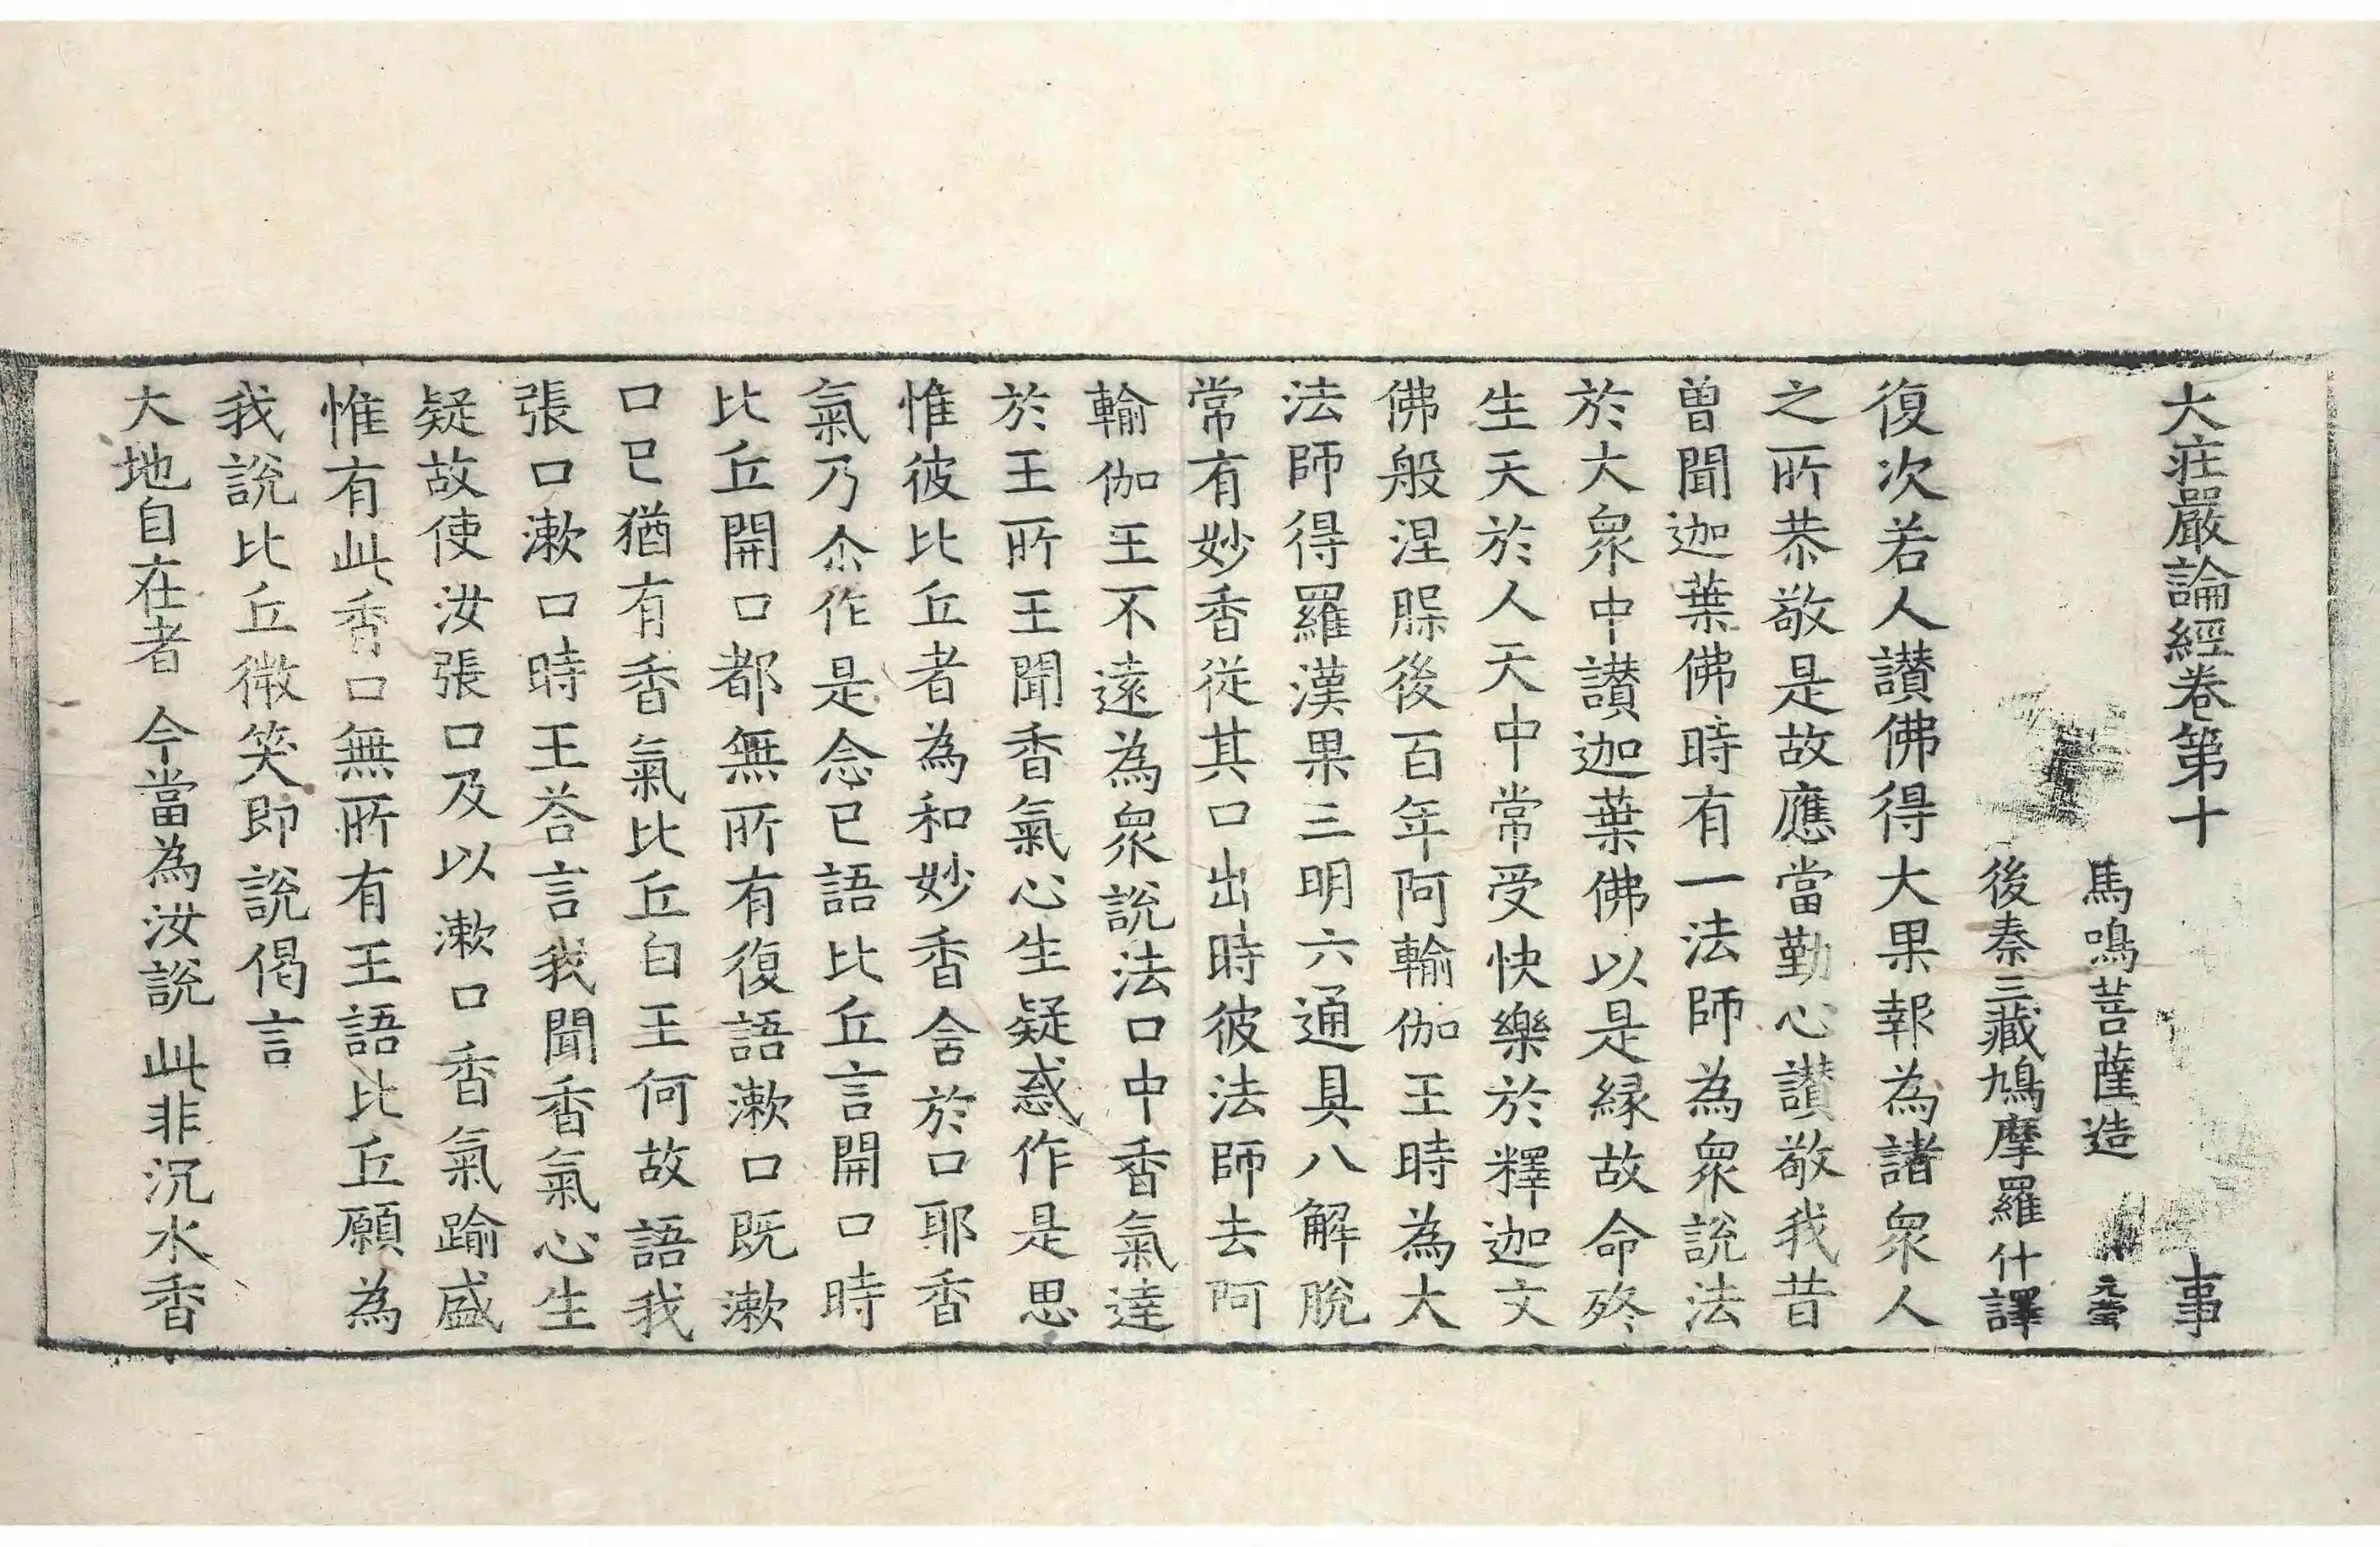 大莊嚴論經卷第十 事
馬鳴菩薩造
後秦三藏鳩摩羅什譯
復次若人讃佛得大果報為諸衆人
之所恭敬是故應當勤心讃敬我昔
曽聞迦葉佛時有一法師為衆說法
於大衆中讃迦葉佛以是縁故命終
生天於人天中常受快樂於釋迦文
佛般涅槃後百年阿輸伽王時為大
法師得羅漢果三明六通具八解脫
常有妙香従其口出時彼法師去阿
輸伽王不遠為衆說法口中香氣達
於王所王聞香氣心生疑惑作是思
惟彼比丘者為和妙香含於口耶香
氣乃尒作是念已語比丘言開口時
比丘開口都無所有復語漱口既漱
口已猶有香氣比丘白王何故語我
張口漱口時王荅言我聞香氣心生
疑故使汝張口及以漱口香氣踰盛
惟有此香口無所有王語比丘願為
我說比丘微笑即說偈言
大地自在者 今當為汝說 此非沉水香